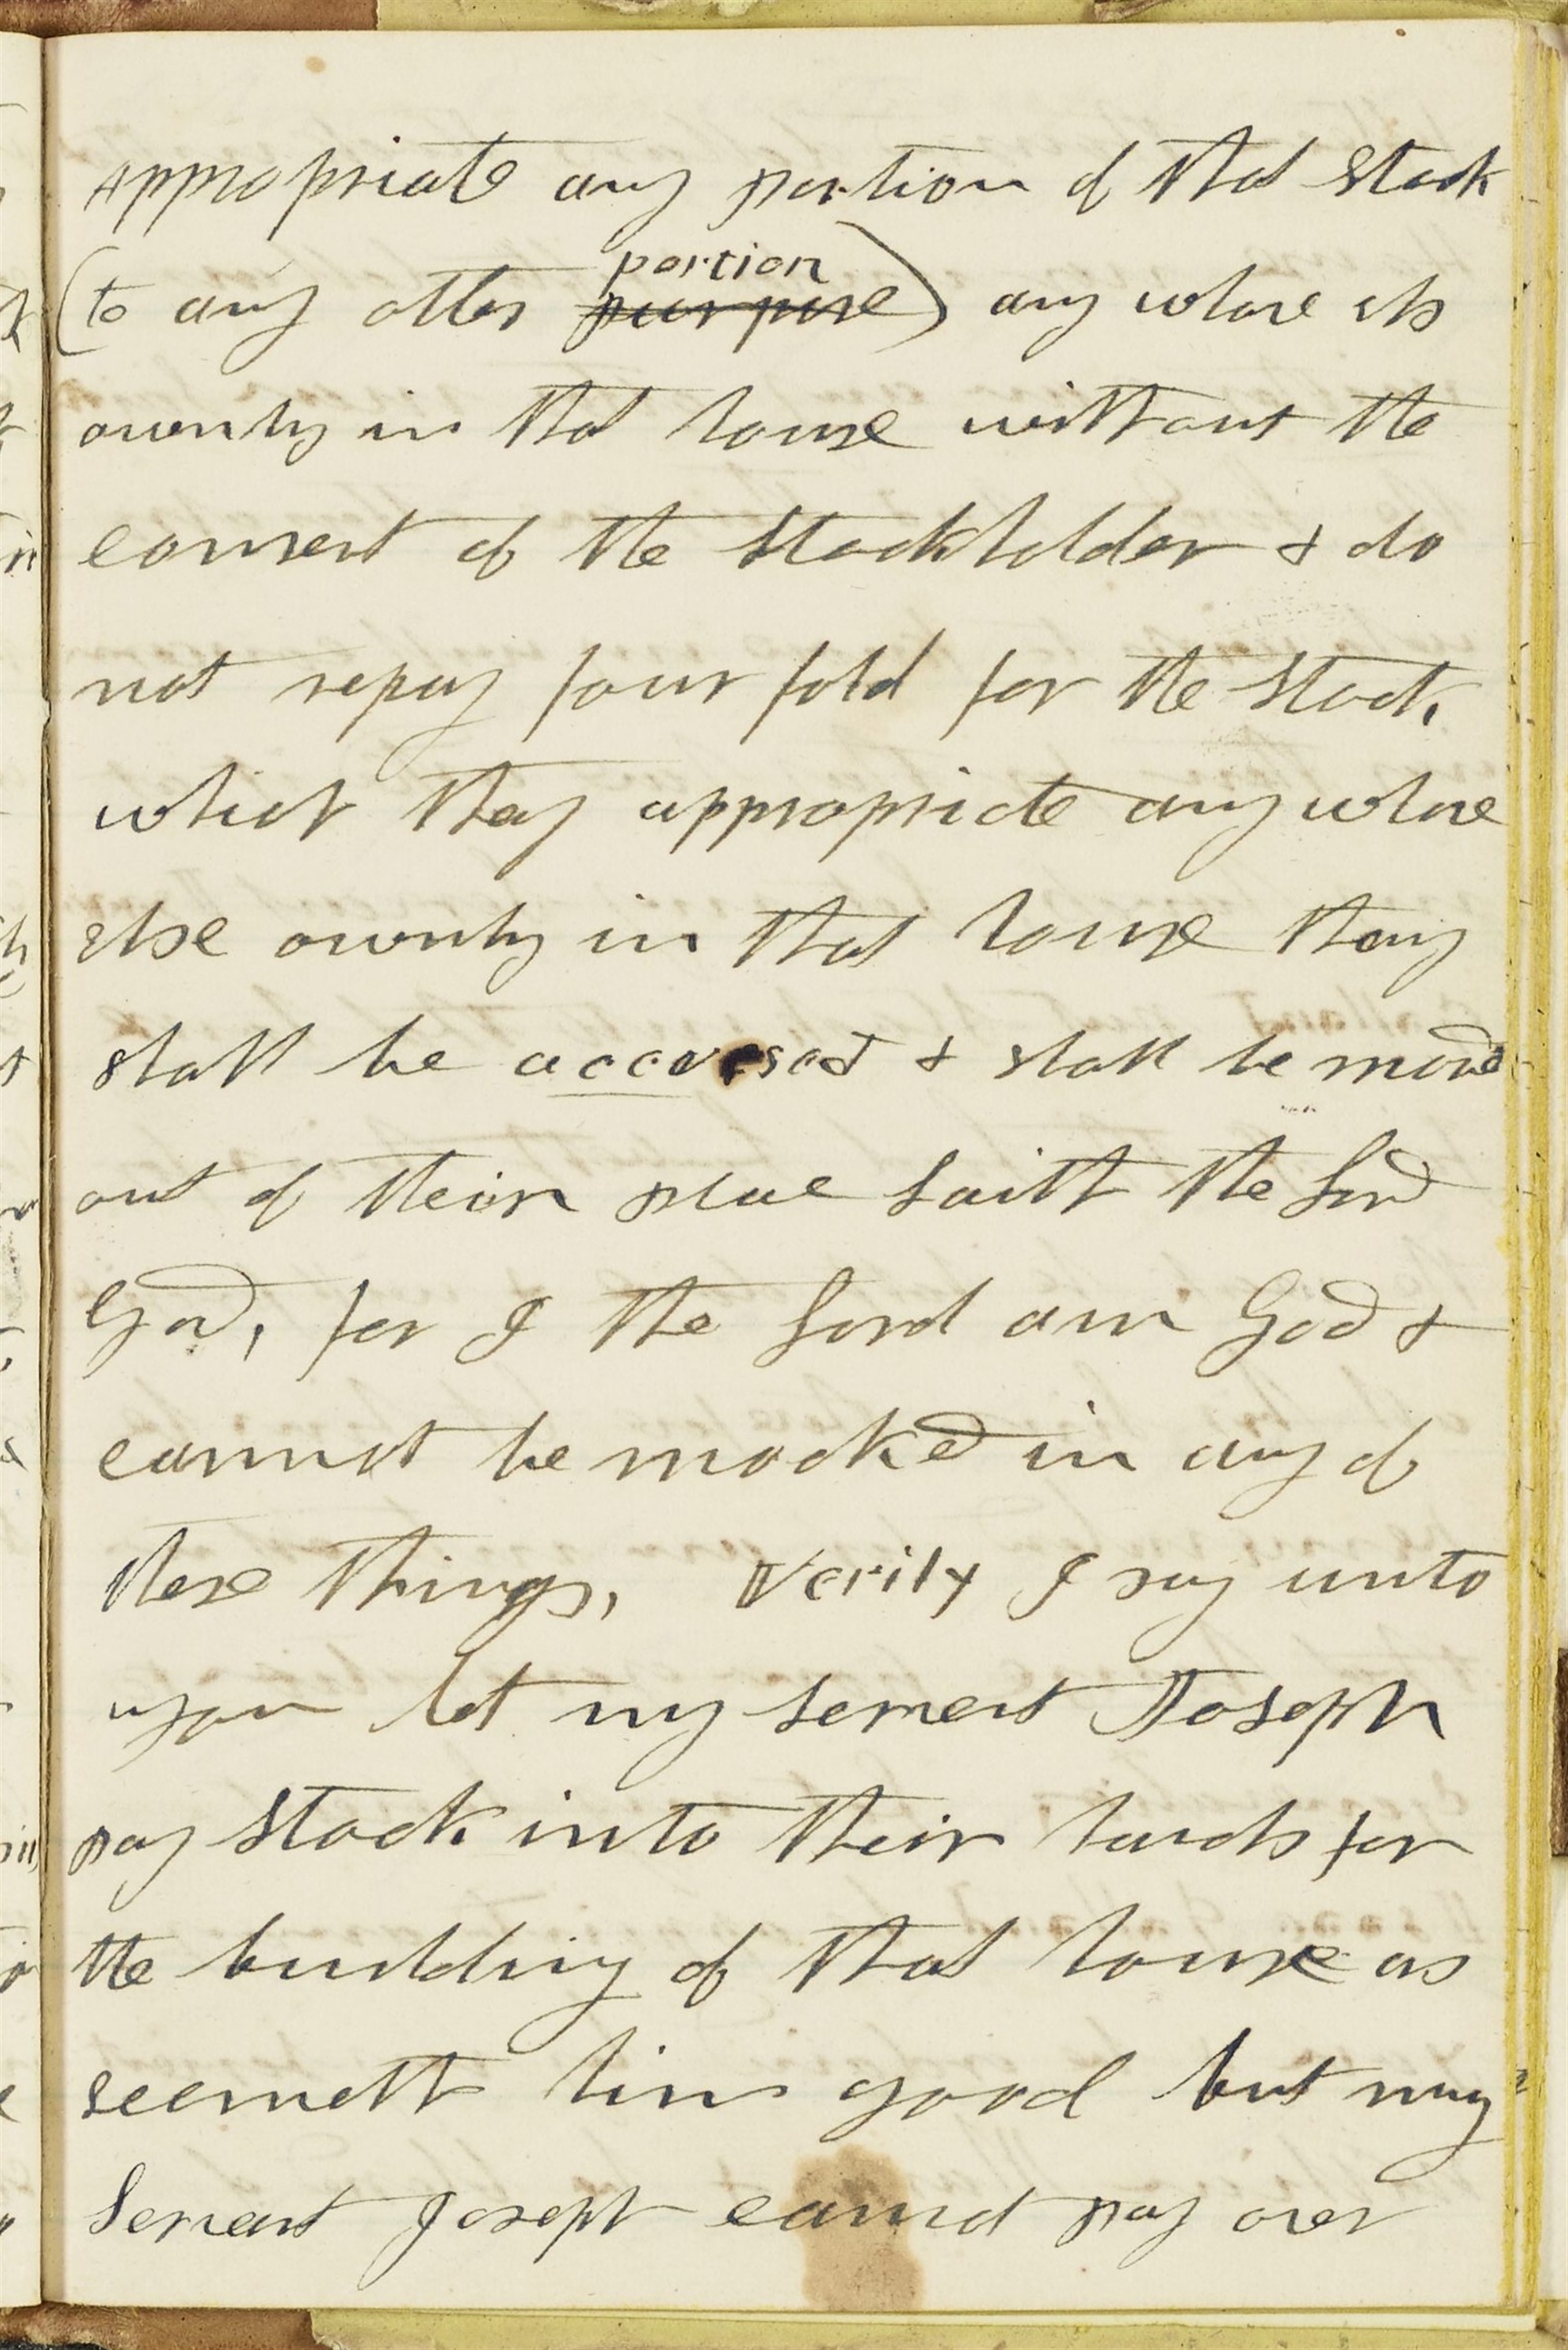 appropriate any portion of that Stock
(to any other purpose portion) any where els
ownly in that house without the
consent of the Stockholder & do
not repay four fold for the Stock,
which they appropriate any where
else ownly in that house they
shall be accorsed & shall be moved
out of their place Saith the Lord
God, for I the Lord am God &
cannot be mocked in any of
these things, Verily I say unto
you let my servent Joseph
pay Stock into their hands for
the building of that house as
seemeth him good but my
Servant Joseph cannot pay over